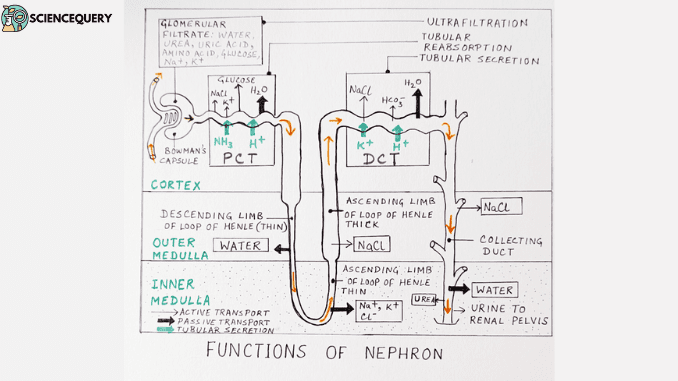 SCIENCEQUERY
GLOMERULAR
FILTRATE: WATER,
UREA, URIC ACID,
AMINO ACID, GLUCOSE,
Na+, K+
ULTRAFILTRATION
TUBULAR
REABSORPTION
TUBULAR SECRETION
GLUCOSE
NaCl
K+
H₂O
NH₃
H+
PCT
BOWMAN'S
CAPSULE
NaCl
HCO₃⁻
H₂O
K+
H+
DCT
CORTEX
DESCENDING LIMB
OF LOOP OF HENLE (THIN)
ASCENDING LIMB
OF LOOP OF HENLE
THICK
NaCl
COLLECTING
DUCT
OUTER
MEDULLA
WATER
NaCl
INNER
MEDULLA
ASCENDING LIMB
OF LOOP OF HENLE
THIN
Na+, K+
Cl-
UREA
WATER
URINE TO
RENAL PELVIS
ACTIVE TRANSPORT
PASSIVE TRANSPORT
TUBULAR SECRETION
FUNCTIONS OF NEPHRON